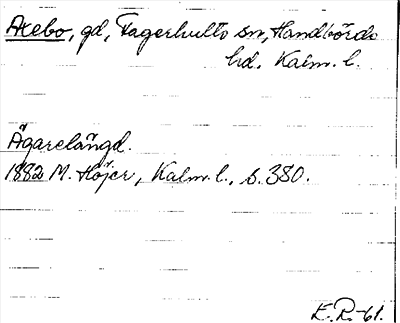 Akebo, gd, Fagerhults sn, Handbörds
hd. Kalm. l.
Ägarelängd.
1882 M. Höjer, Kalm. l., s. 380.
E.R.-61.